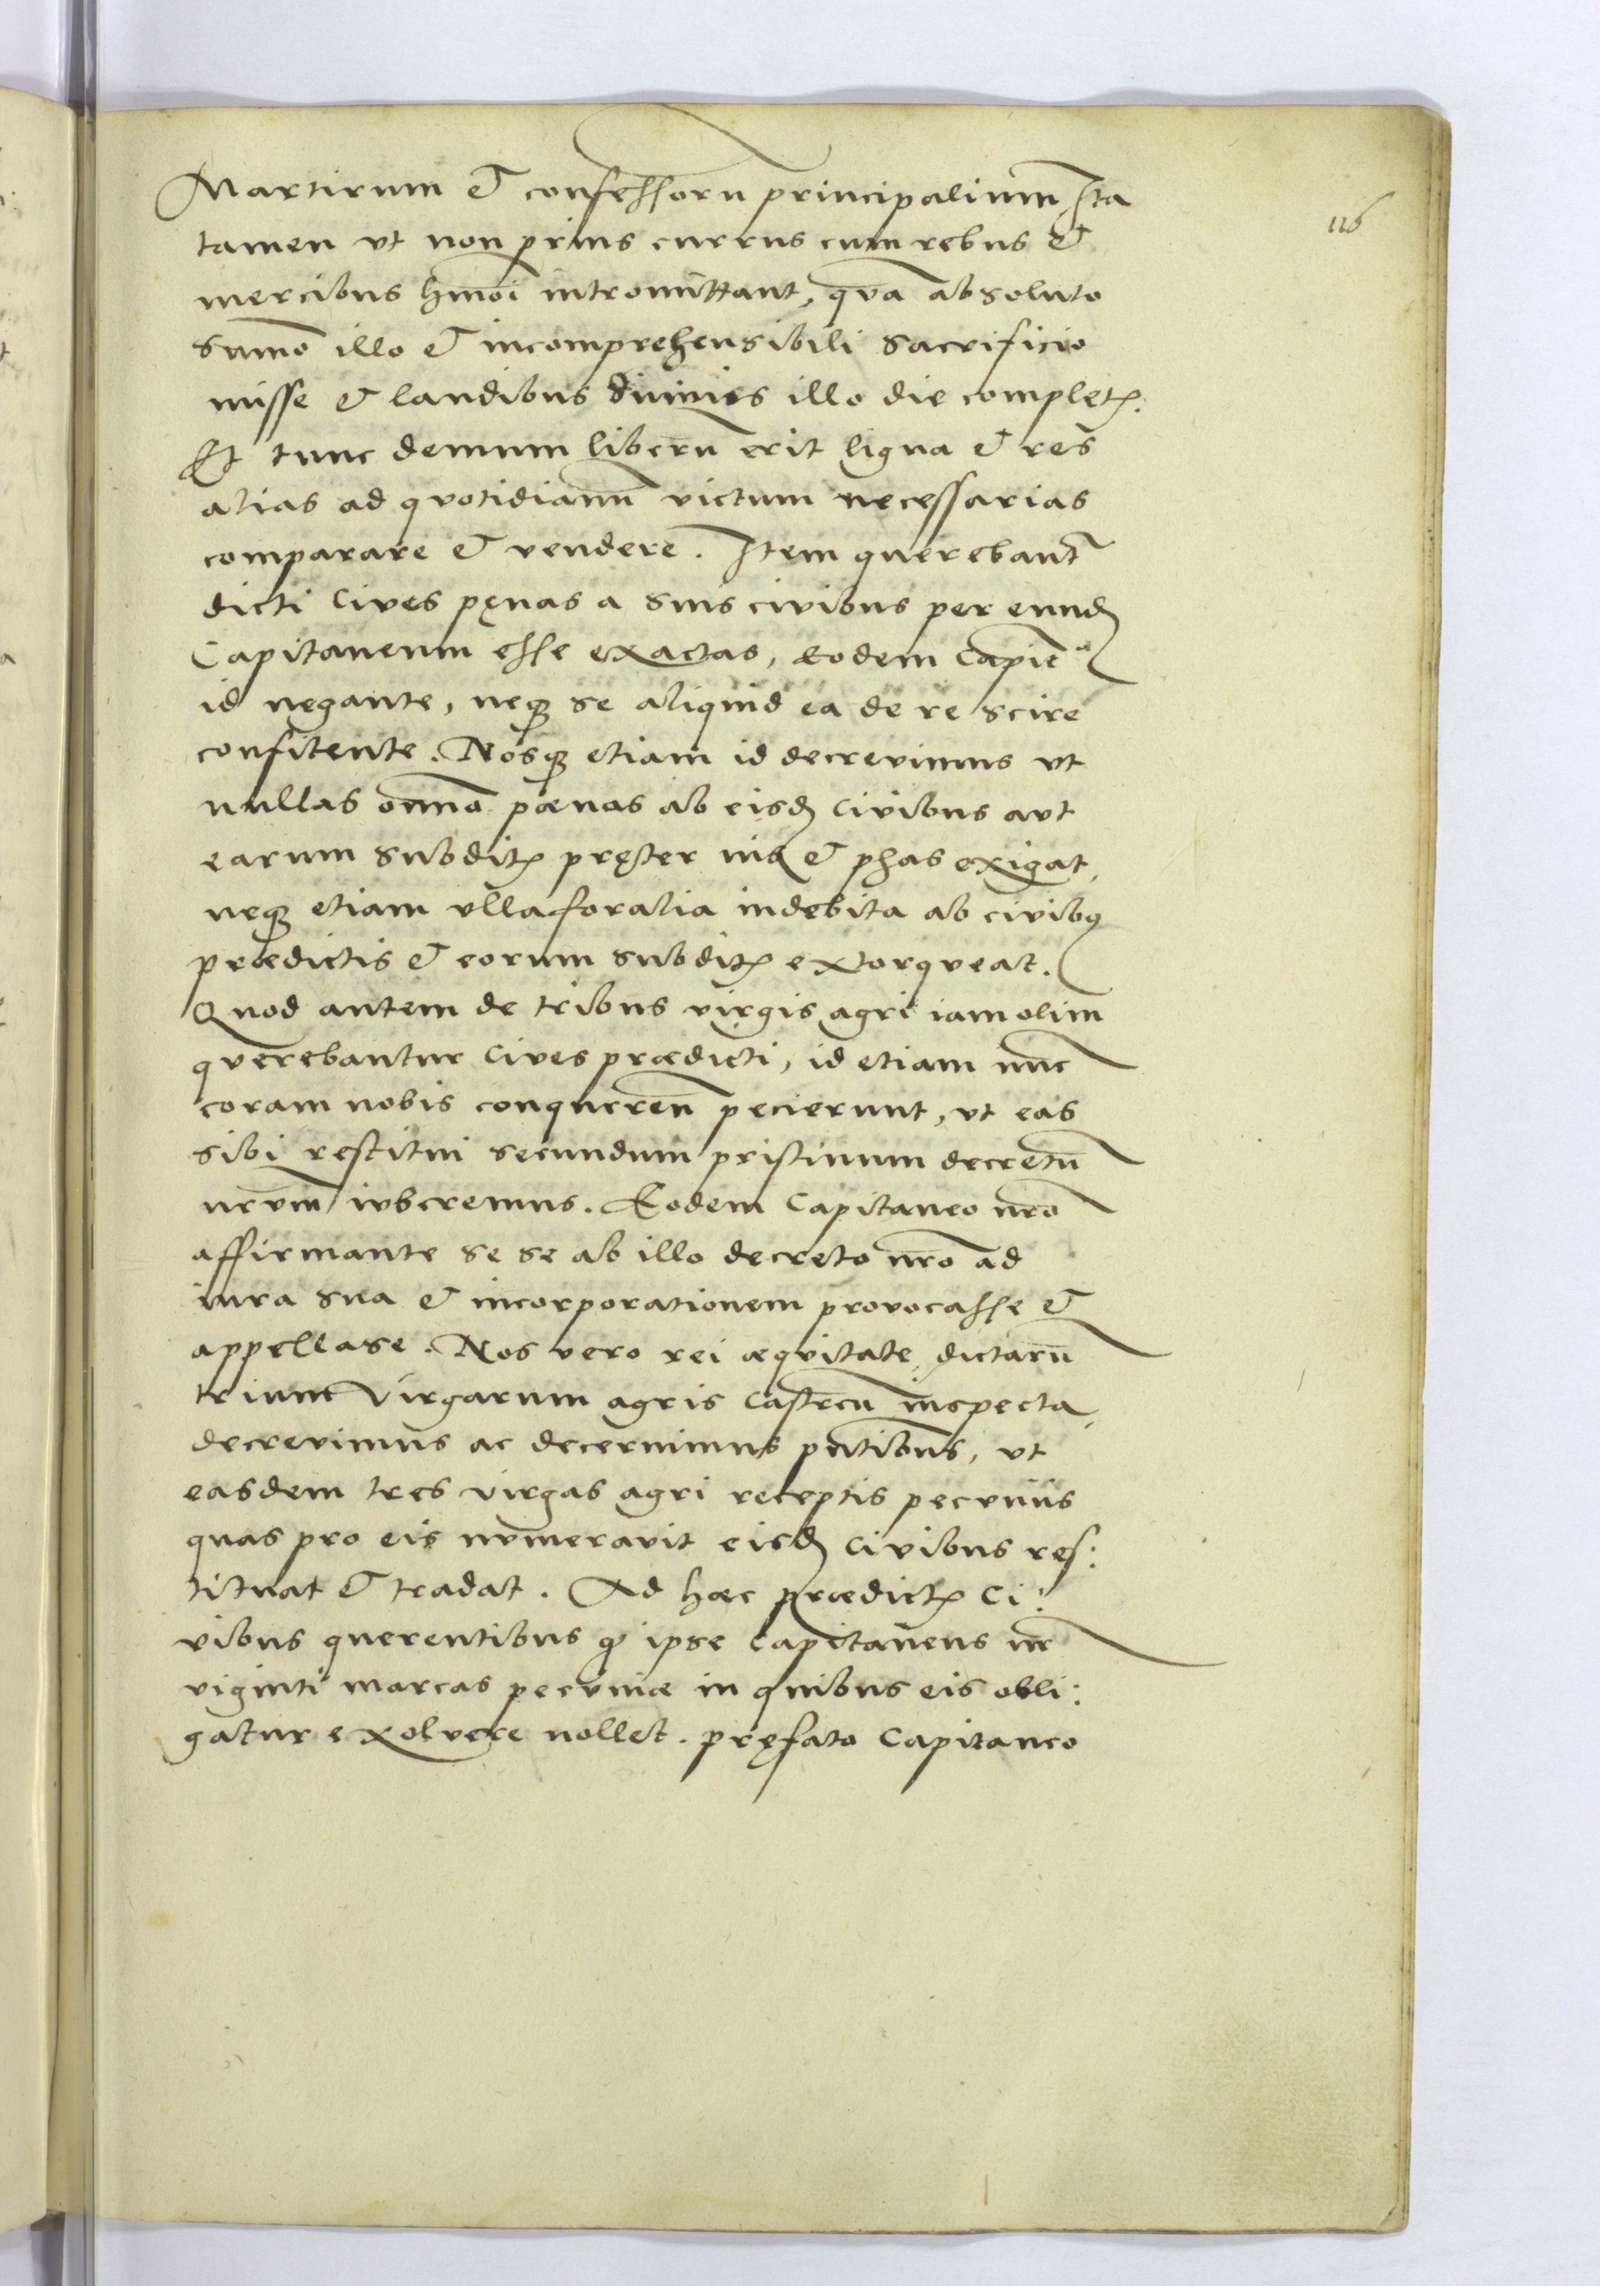 116
Martirum & confessorū principalium Ita
tamen vt non prius currus cum rebus &
mercibus hmōi intromittant, qvā absoluto
sumō illo & incomprehensibili sacrificio
misse & laudibus diuinis illo die completꝭ.
Et tunc demum liberū erit ligna & res
alias ad qvotidianū victum necessarias
comparare & vendere. Item querebantr
dicti Cives pęnas a suis civibus per eundē
Capitaneum esse exactas, Eodem Capite
id negante, neqꝫ se aliquid ea de re scire
confitente. Nosqꝫ etiam id decrevimus vt
nullas omnō pœnas ab eisdē Civibus avt
earum subditꝭ pręter ius & phas exigat,
neqꝫ etiam vlla foralia indebita ab civibꝰ
prædictis & eorum subditꝭ extorqveat.
Quod autem de tribus virgis agri iam olim
qverebantur Cives prædicti, id etiam nunc
coram nobis conqueren̄ pecierunt, vt eas
sibi restitui secundum pristinum decretū
nr̄vm ivberemus. Eodem Capitaneo nr̄o
affirmante se se ab illo decreto nr̄o ad
iura sua & incorporationem provocasse &
appellase. Nos vero rei æqvitate dictarū
trium Virgarum agris Castren̄ inspecta,
decrevimus ac decernimus pn̄tibus, vt
easdem tres virgas agri receptis pecvniis
quas pro eis nvmeravit eisdē Civibus res:
tituat & tradat. Ad hæc prædictꝭ Ci:
vibus querentibus qꝫ ipse Capitaneus nr̄
viginti marcas pecvniæ in quibus eis obli:
gatur exolvere nollet. pręfato Capitaneo